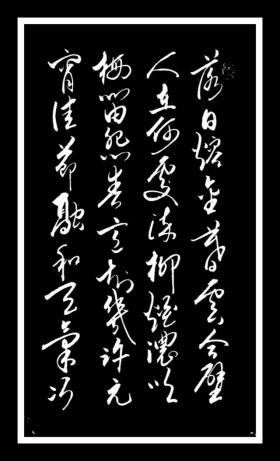 落日熔金暮雲合璧
人在何處染柳煙濃吹
梅笛怨春意知幾許元
宵佳節融和天氣次